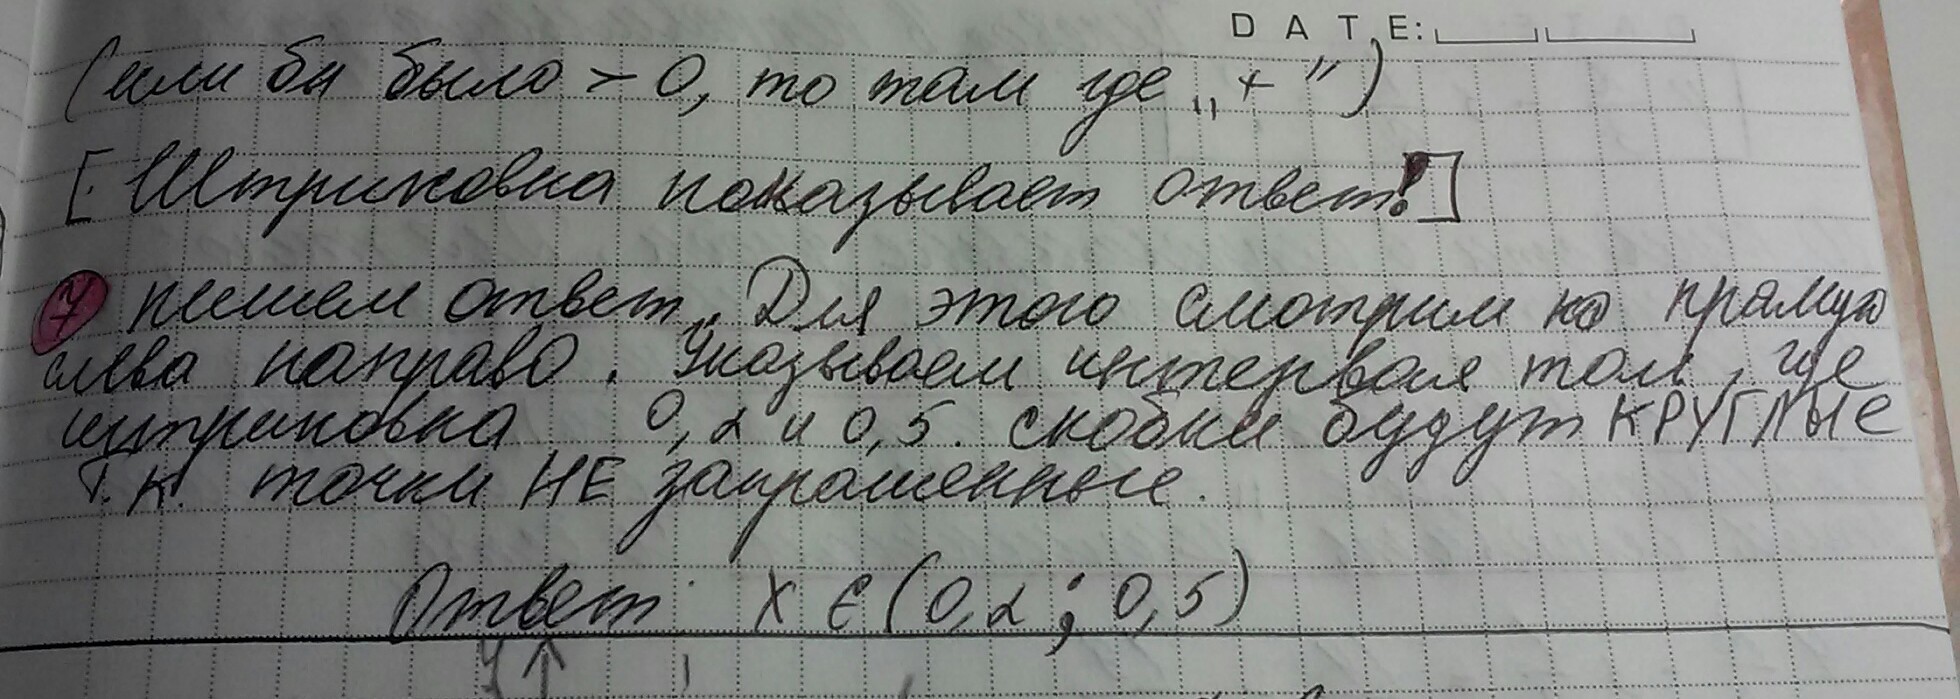 DATE:
(если бы было > 0, то там где „+")
[Штриховка показывает ответ!]
7 пишем ответ. Для этого смотрим на прямую
слева направо. Указываем интервал там, где
штриховка 0,2 и 0,5. скобки будут КРУГЛЫЕ
т.к. точки НЕ закрашенные.
Ответ: x ∈ (0,2 ; 0,5)